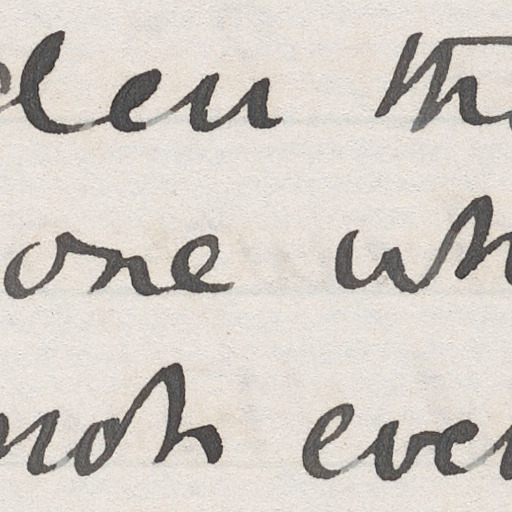 den th
one wh
not even